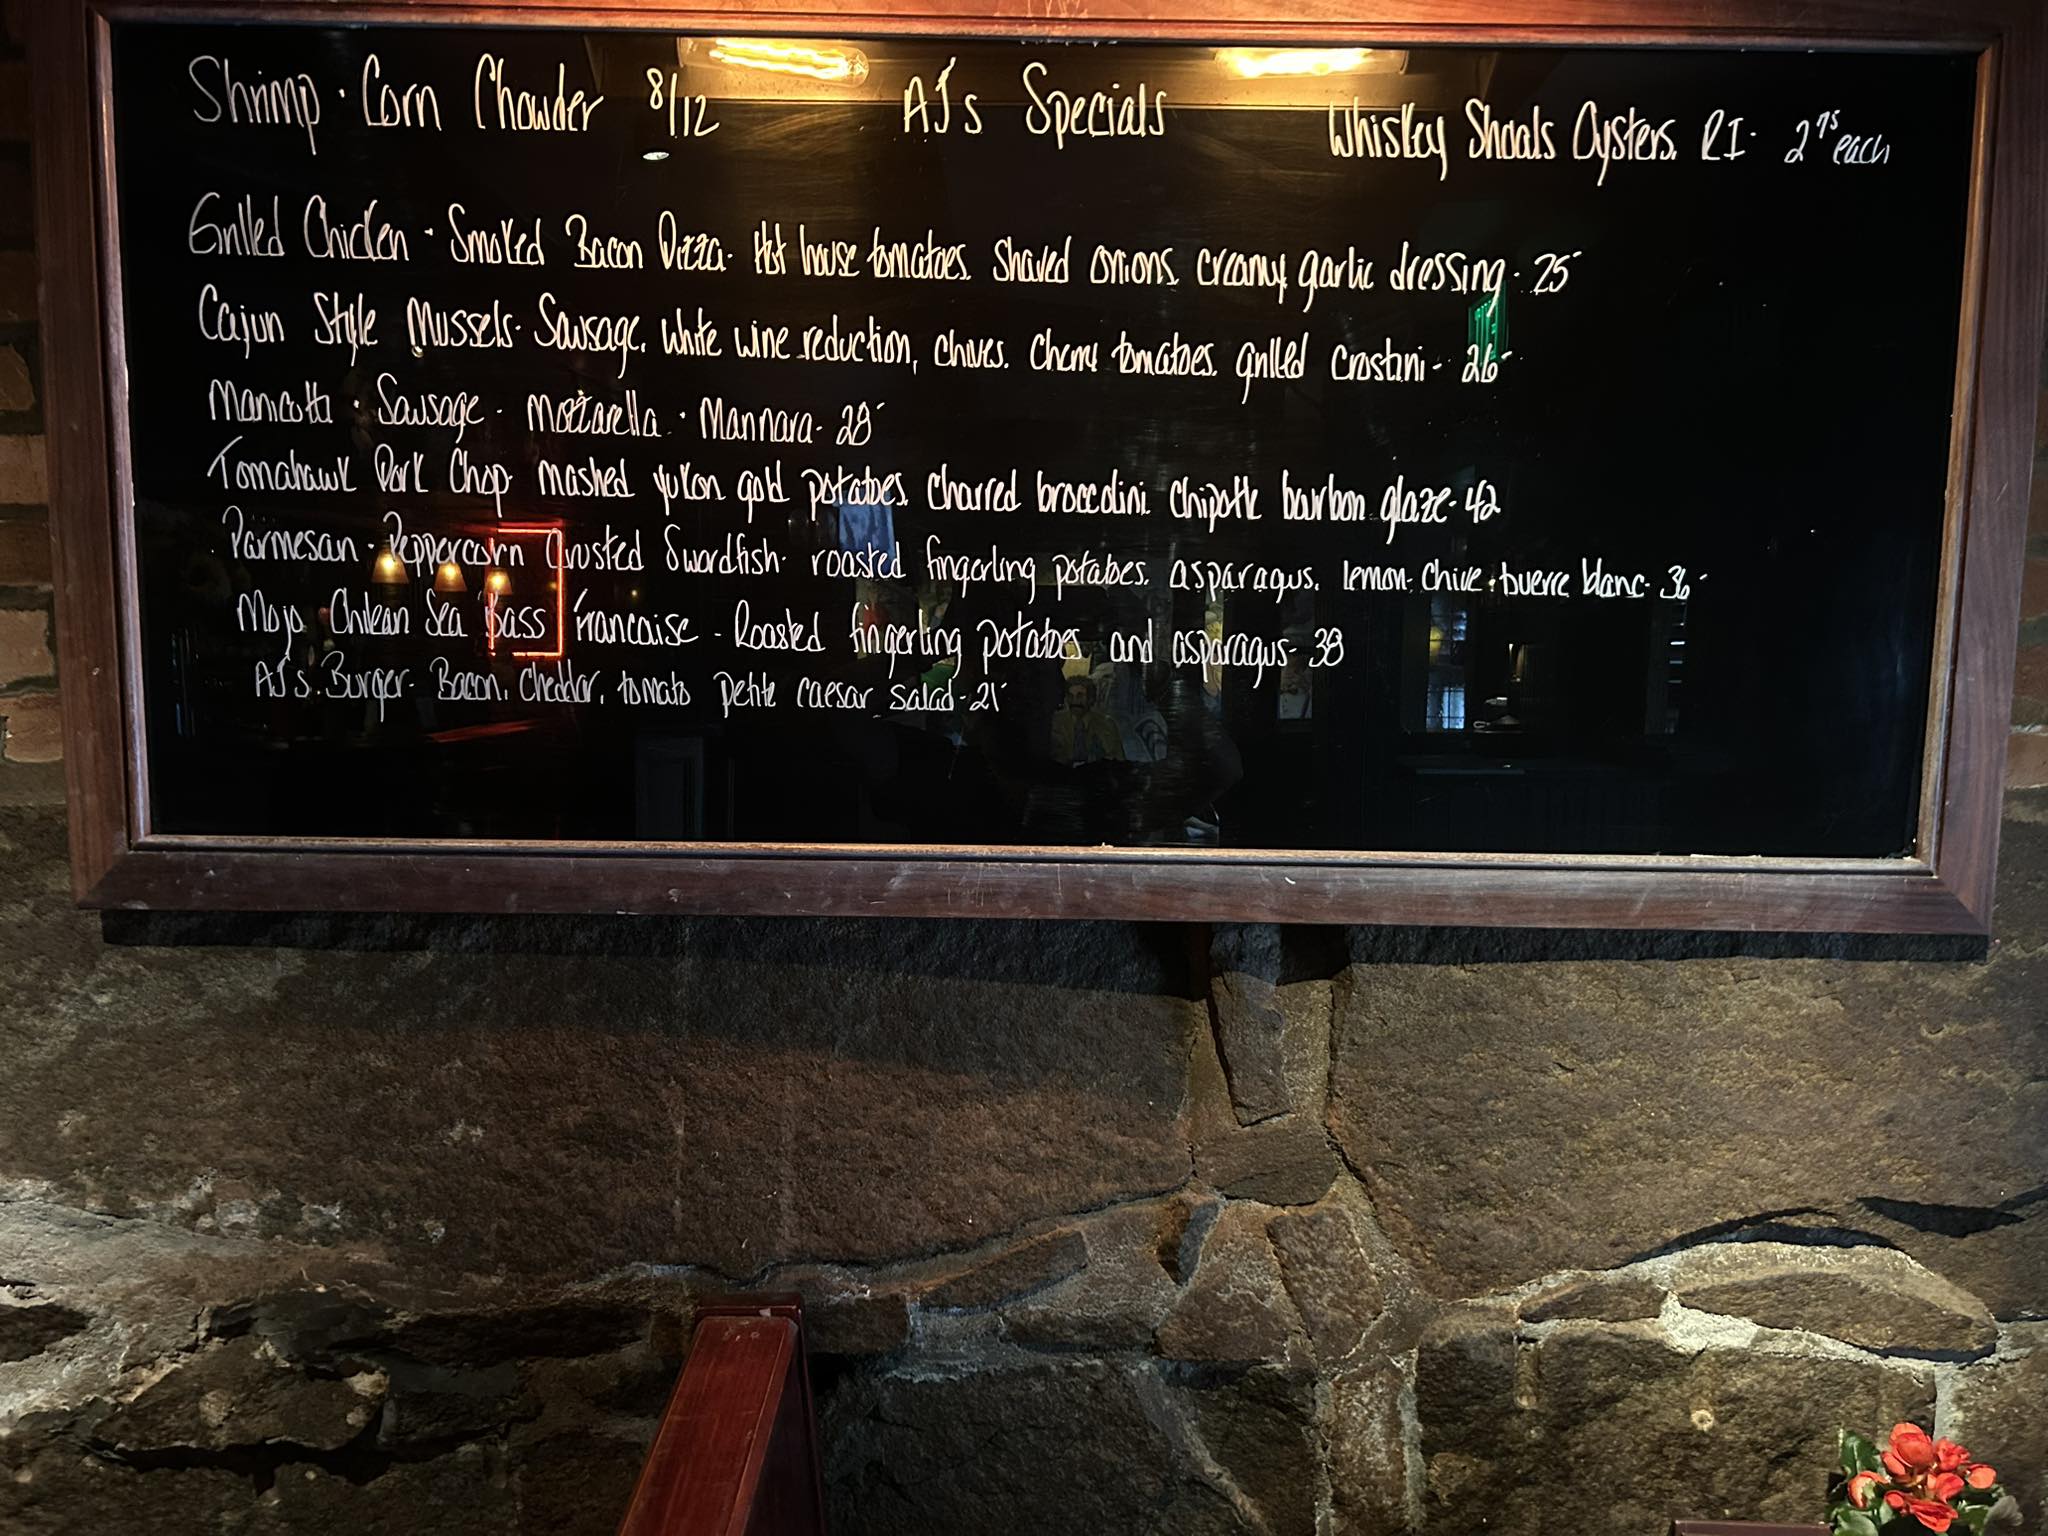 Shrimp · Corn Chowder 8/12
AJ's Specials
Whiskey Shoals Oysters. RI - 2.75 each
Grilled Chicken · Smoked Bacon Pizza - Hot house tomatoes. Shaved onions. creamy garlic dressing - 25-
Cajun Style Mussels - Sausage. White wine reduction, chives. Cherry tomatoes. grilled Crostini - 26-
Manicotta · Sausage · Mozzarella · Mannara - 28-
Tomahawk Pork Chop - mashed yukon gold potatoes. Charred broccolini. Chipotle bourbon glaze - 42
Parmesan · Peppercorn Crusted Swordfish - roasted fingerling potatoes. asparagus. lemon - chive · buerre blanc - 36-
Mojo Chilean Sea Bass Francaise - Roasted fingerling potatoes and asparagus - 38
AJ's. Burger - Bacon, Cheddar, tomato petite caesar salad - 21-